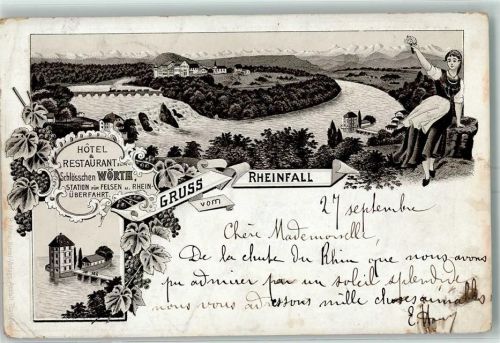 HÔTEL
RESTAURANT
Schlösschen WÖRTH
STATION FÜR FELSEN u. RHEIN-
ÜBERFAHRT.
GRUSS vom RHEINFALL
27 septembre
Chère Mademoiselle,
De la chute du Rhin que nous avons
pu admirer par un soleil splendide
nous vous adressons mille choses aimables